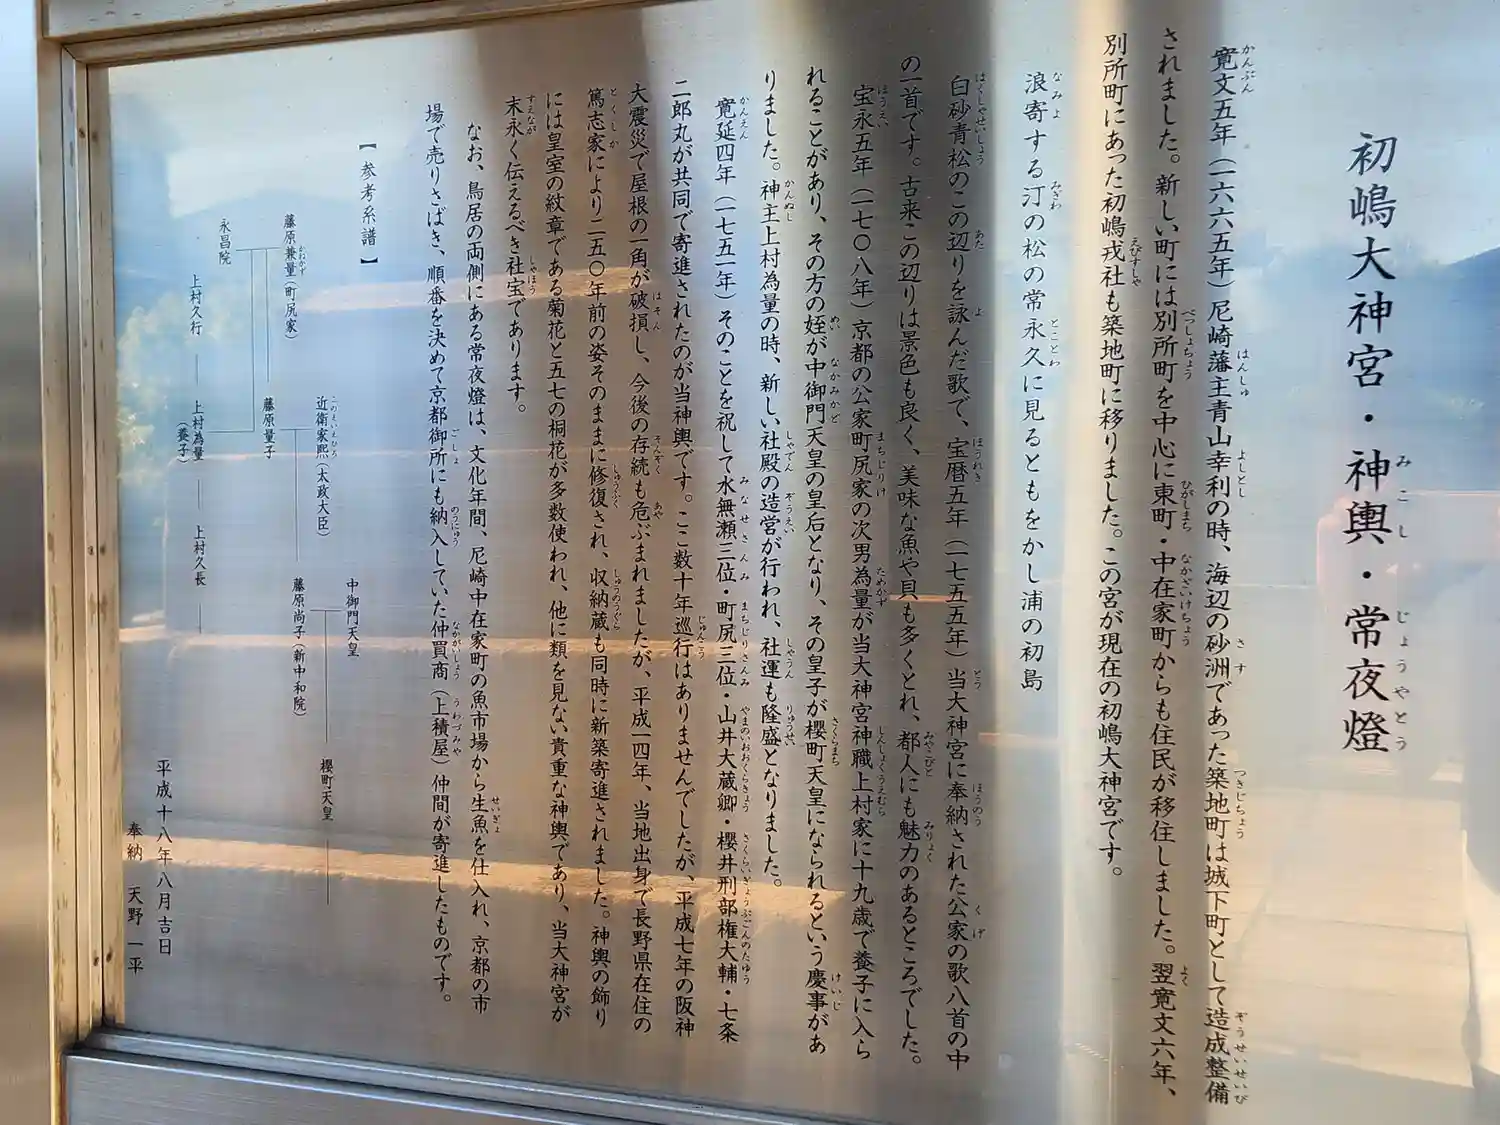 初嶋大神宮・神輿・常夜燈
みこし
じょうやとう
寛文五年（一六六五年）尼崎藩主青山幸利の時、海辺の砂洲であった築地町は城下町として造成整備
されました。新しい町には別所町を中心に東町・中在家町からも住民が移住しました。翌寛文六年、
別所町にあった初嶋戎社も築地町に移りました。この宮が現在の初嶋大神宮です。
浪寄する汀の松の常永久に見るともをかし浦の初島
白砂青松のこの辺りを詠んだ歌で、宝暦五年（一七五五年）当大神宮に奉納された公家の歌八首の中
の一首です。古来この辺りは景色も良く、美味な魚や貝も多くとれ、都人にも魅力のあるところでした。
宝永五年（一七〇八年）京都の公家町尻家の次男為量が当大神宮神職上村家に十九歳で養子に入ら
れることがあり、その方の姪が中御門天皇の皇后となり、その皇子が櫻町天皇になられるという慶事があ
りました。神主上村為量の時、新しい社殿の造営が行われ、社運も隆盛となりました。
寛延四年（一七五一年）そのことを祝して水無瀬三位・町尻三位・山井大蔵卿・櫻井刑部権大輔・七条
二郎丸が共同で寄進されたのが当神輿です。ここ数十年巡行はありませんでしたが、平成七年の阪神
大震災で屋根の一角が破損し、今後の存続も危ぶまれましたが、平成一四年、当地出身で長野県在住の
篤志家により二五〇年前の姿そのままに修復され、収納蔵も同時に新築寄進されました。神輿の飾り
には皇室の紋章である菊花と五七の桐花が多数使われ、他に類を見ない貴重な神輿であり、当大神宮が
末永く伝えるべき社宝であります。
なお、鳥居の両側にある常夜燈は、文化年間、尼崎中在家町の魚市場から生魚を仕入れ、京都の市
場で売りさばき、順番を決めて京都御所にも納入していた仲買商（上積屋）仲間が寄進したものです。
【参考系譜】
藤原兼量（町尻家）
永昌院
上村久行
上村為量
（養子）
上村久長
藤原量子
近衛家熙（太政大臣）
藤原尚子（新中和院）
中御門天皇
櫻町天皇
平成十八年八月吉日
奉納　天野一平